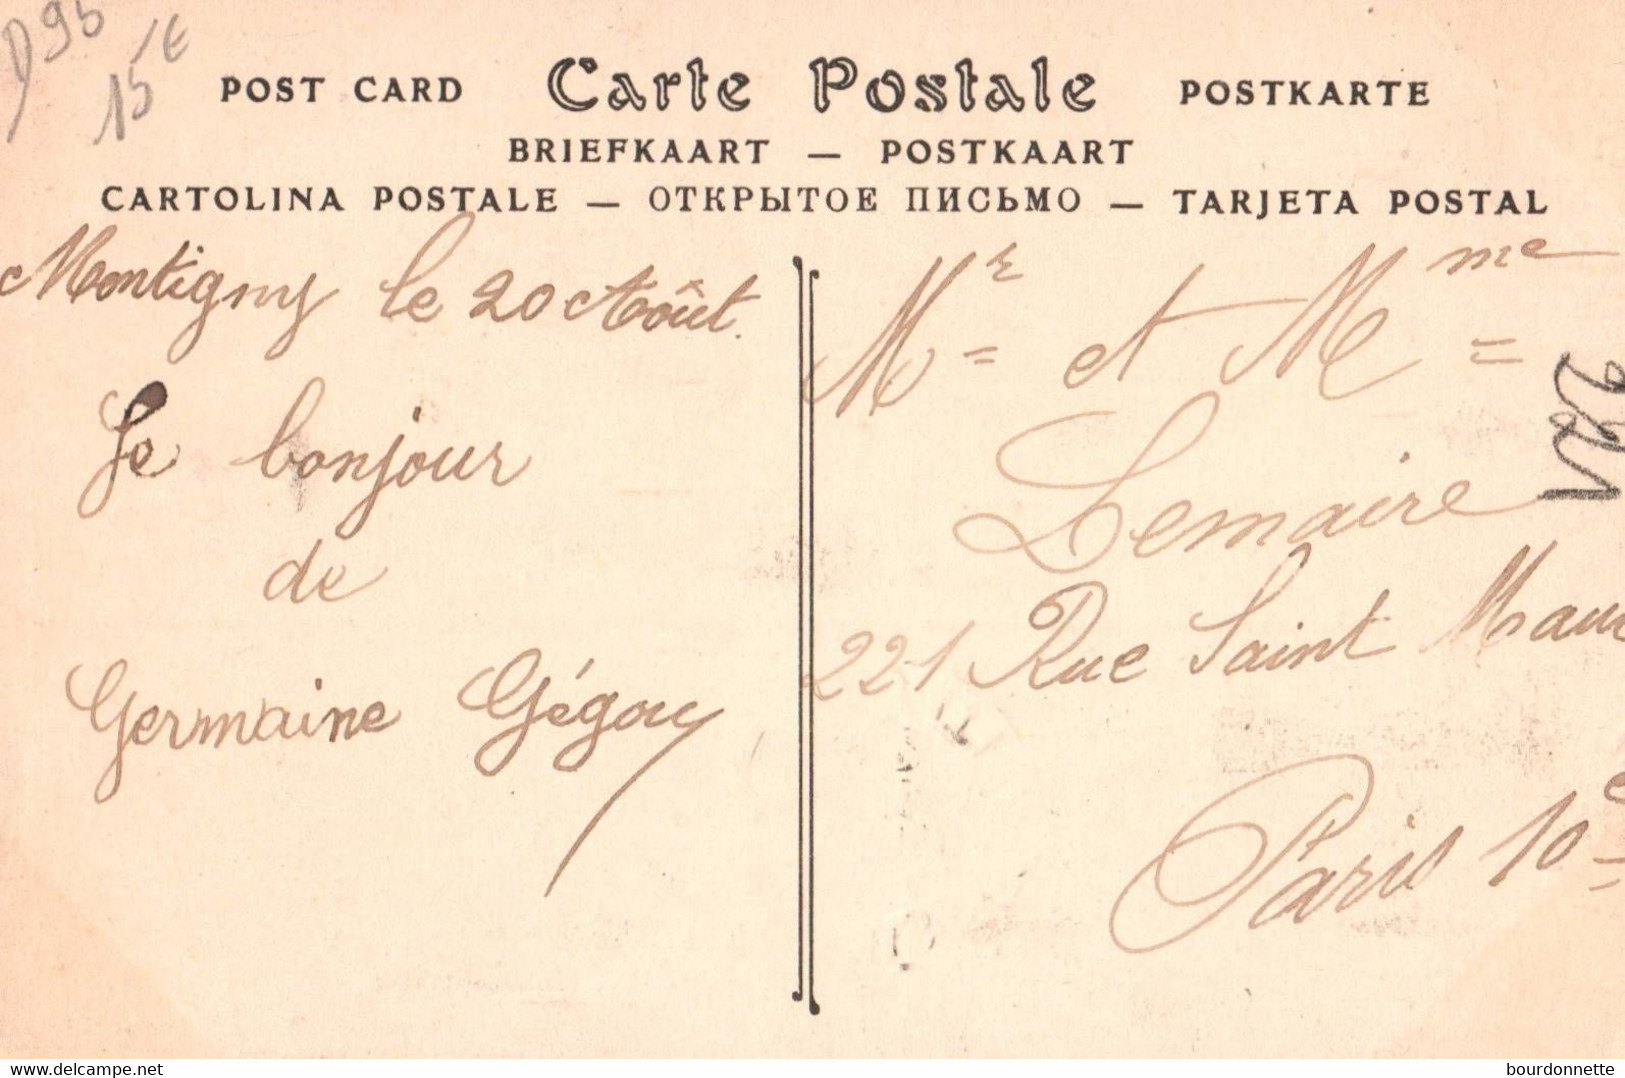 D95
15€
POST CARD Carte Postale POSTKARTE
BRIEFKAART — POSTKAART
CARTOLINA POSTALE — ОТКРЫТОЕ ПИСЬМО — TARJETA POSTAL
Montigny le 20 Août.
Le bonjour
de
Germaine Gégou
Mr = et Mme =
Lemaire
221 Rue Saint Maur
Paris 10e
delcampe.net
bourdonnette